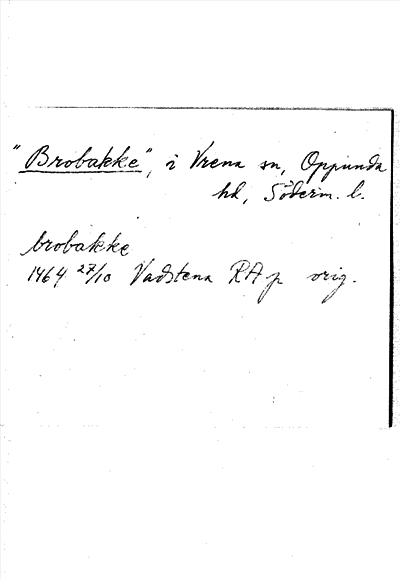 "Brobakke", i Vrena sn, Oppunda
hd, Söderm. l.
brobakke
1464 27/10 Vadstena RA p orig.